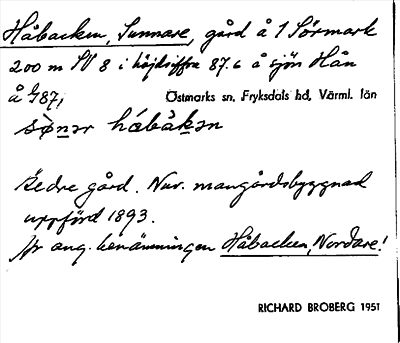 Håbacken, Sunnare, gård å 1 Sörmark
200 m SV 8 i höjdsiffra 87.6 å sjön Hån
å 687;
Östmarks sn, Fryksdals hd, Värml. län
hábàkən
Äldre gård. Nuv. mangårdsbyggnad
uppförd 1893.
Jfr ang. benämningen Håbacken, Nordare!
RICHARD BROBERG 1951